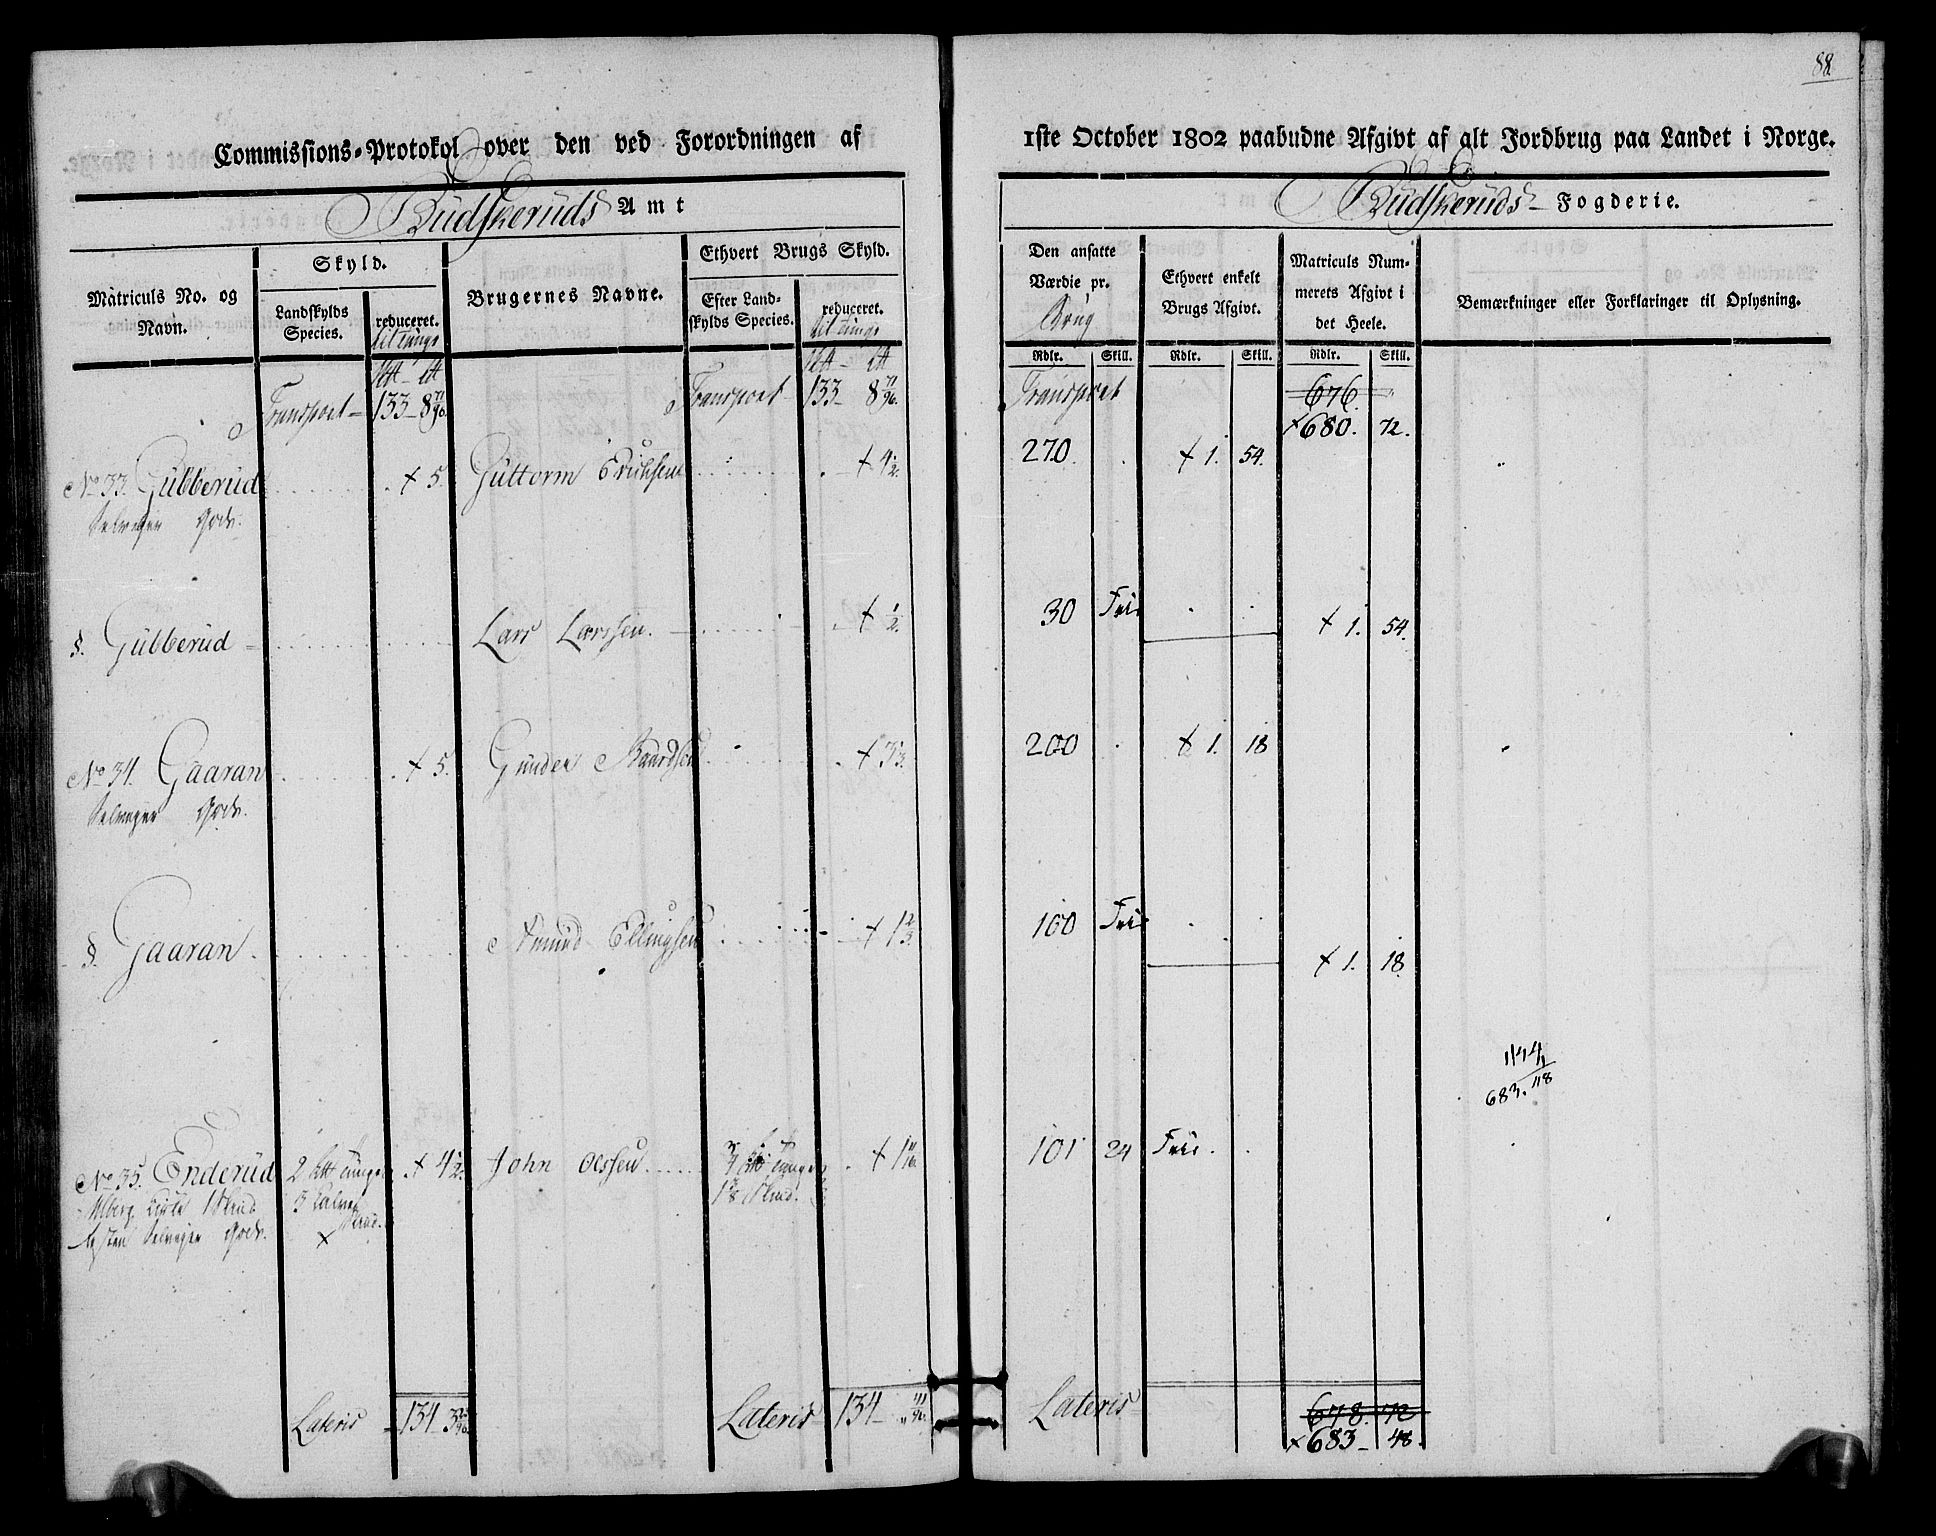 88.
Commissions-Protokol over den ved Forordningen af 1ste October 1802 paabudne Afgivt af alt Jordbrug paa Landet i Norge.
Budskeruds Amt
Budskeruds Fogderie.
Matriculs No. og Navn.
Skyld.
Landskylds Species.
reduceret.
Brugernes Navne.
Ethvert Brugs Skyld.
Efter Landskylds Species.
reduceret.
Den ansatte Værdie pr. Brug
Rdlr. Skill.
Ethvert enkelt Brugs Afgivt.
Rdlr. Skill.
Matriculs Nummerets Afgivt i det Heele.
Rdlr. Skill.
Bemærkninger eller Forklaringer til Oplysning.
Transport 133 8 71/96. Transport 133 8 71/96. Transport 676.
+680. 72.
No 33. Gubberud + 5. Guttorm Erichsen + 4 1/2. 270. + 1. 54.
Selveier Gods.
§. Gubberud Lars Larssen. + 1/2. 30 Frie + 1. 54.
No 34. Gaaran + 5. Gunder Baardsen + 3 1/3. 200 + 1. 18
Selveier Gods.
§. Gaaran Amund Ellingsen + 1 2/3. 100 Frie + 1. 18.
1144
683. 118
No 35. Enderud 2 + 4 1/2. John Olssen 101 24 Frie.
Selveier Gods.
Lateris 134 3 Lateris 134 Lateris 678. 72
+683 48.